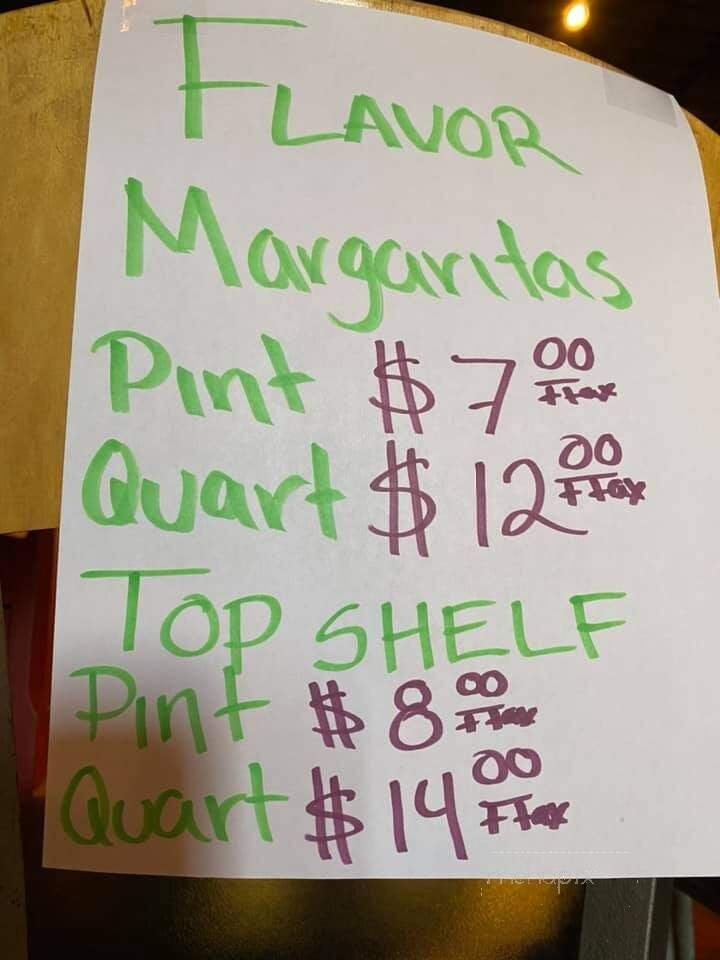 FLAVOR
Margaritas
Pint $ 7 00 +tax
Quart $ 12 00 +tax
TOP SHELF
Pint $ 8 00 +tax
Quart $ 14 00 +tax
menupix